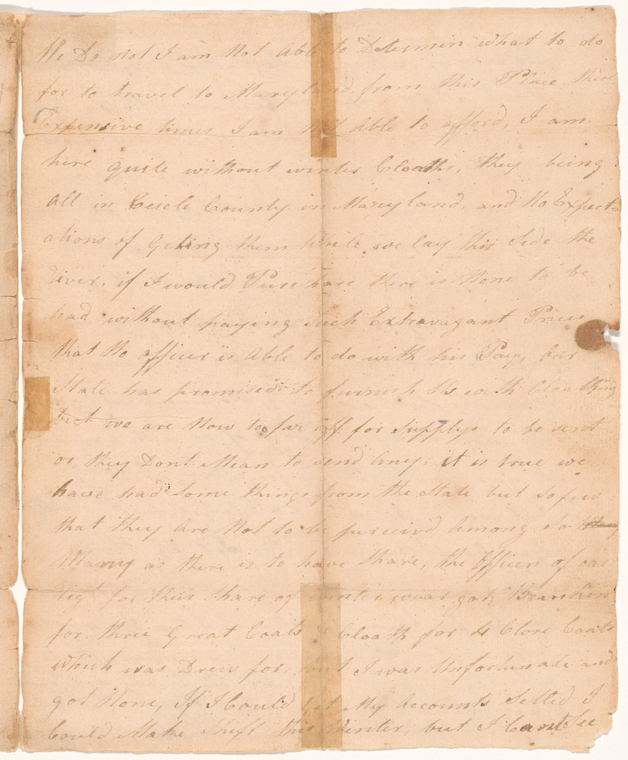 We Do not I am Not Able to Determin what to do
for to travel to Maryland from this Place these
Expensive times I am Not Able to afford, I am
here quite without winter Cloaths, they being
all in Cicile County in Maryland, and No Expect
ations of Geting them While we lay this Side the
River, if I would Purchase there is None to be
had without paying such Extravagant Prices
that No officer is Able to do with his Pay, Our
State has promised to furnish Us with Cloathing
but we are Now to far off for Supplys to be sent
or they Dont Mean to send Any, it is true we
have had Some things from the State but so few
that they Are Not to be perceived Among So
Many as there is to have Share, the Officers of our
Regt for their Share of winter wear got
for three Great Coats & Cloath for 4 Close Coats
Which was Drew for, but I was Unfortunate and
got None, If I Could get My Accounts Setled I
Could Make Shift this Winter, but I Cant be